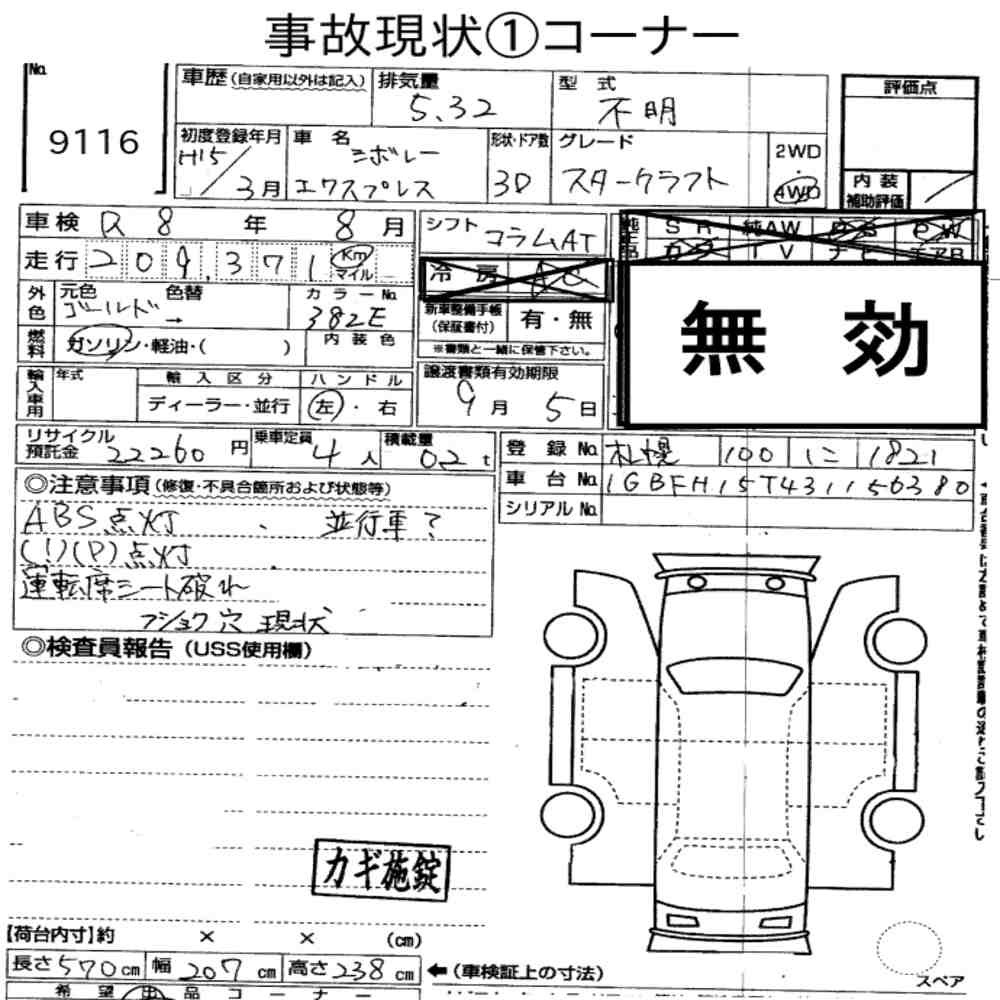 事故現状①コーナー
No. 9116
車歴(自家用以外は記入) 排気量 5.32 型式 不明 評価点
初度登録年月 H15/3月 車名 シボレー エクスプレス 形状・ドア数 3D グレード スタークラフト 2WD・4WD
内装補助評価
車検 R8年8月 シフト コラムAT 純正品 SR 純AW PS PW
走行 209,371 Km マイル 冷房 AC カワ TV ナビ エアB
外色 元色 ゴールド 色替 → カラーNo. 382E 新車整備手帳(保証書付) 有・無
無効
燃料 ガソリン・軽油・( ) 内装色 ※書類と一緒に保管下さい。
輸入車用 年式 輸入区分 ディーラー・並行 ハンドル 左・右 譲渡書類有効期限 9月5日
リサイクル預託金 22260円 乗車定員 4人 積載量 02t 登録No. 札幌 100 に 1821
車台No. 1GBFH15T431156380
シリアルNo.
◎注意事項(修復・不具合箇所および状態等)
ABS点灯 並行車?
(!)(P)点灯
運転席シート破れ
フショク穴 現状
◎検査員報告(USS使用欄)
カギ施錠
【荷台内寸】約 × × (cm)
長さ570cm 幅207cm 高さ238cm ←(車検証上の寸法)
スペア
希望出品コーナー